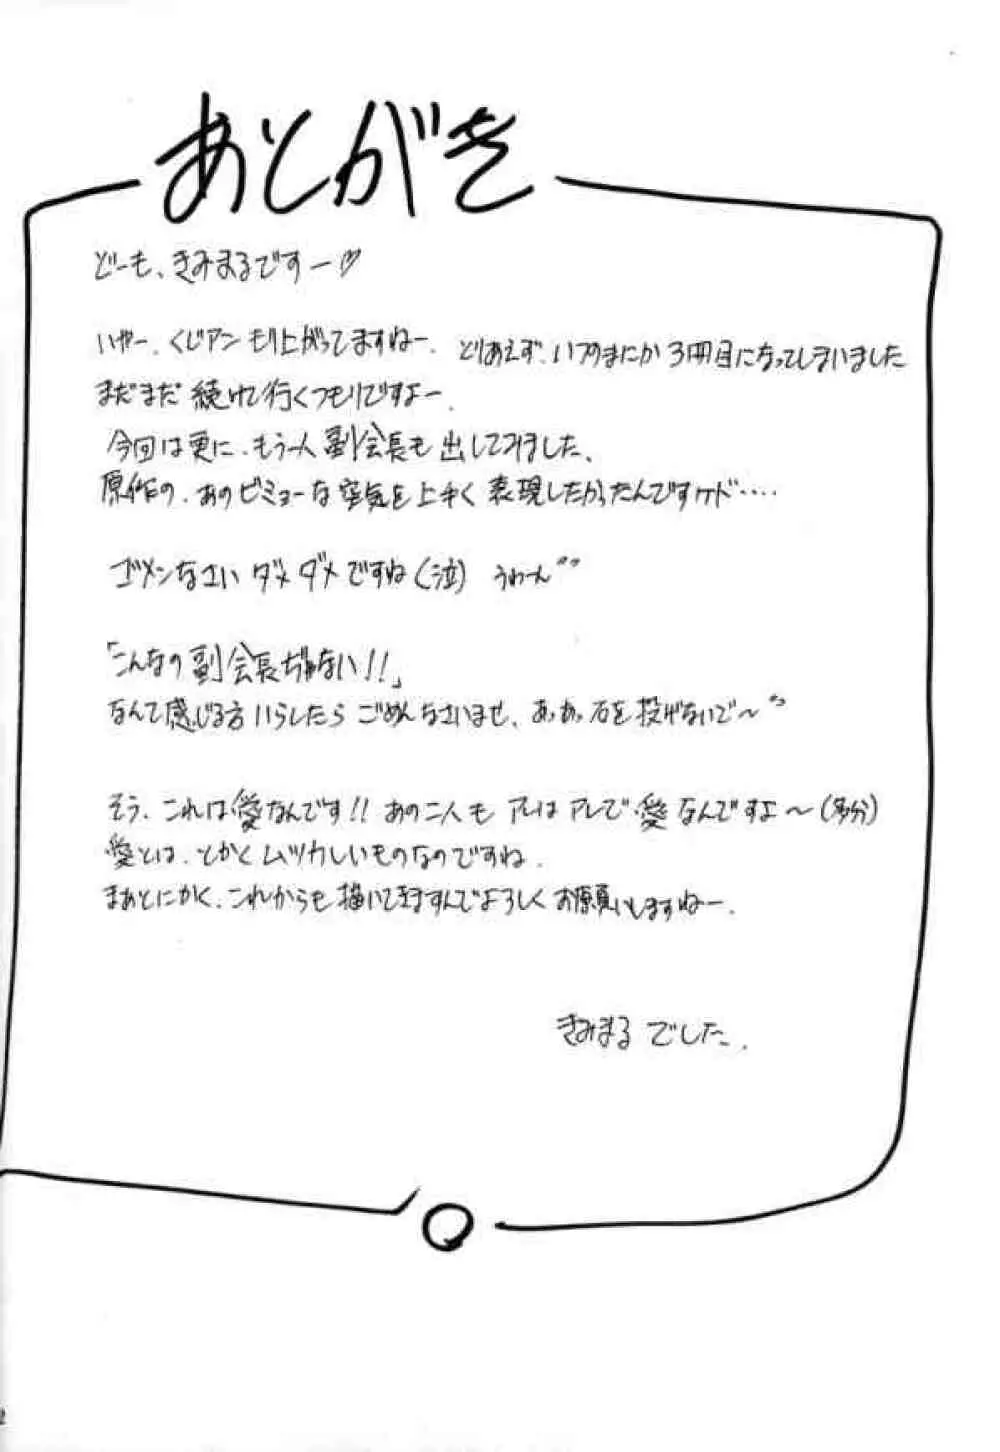 あとがき
どーも、きみまるですー♡
いやー、くじアンもり上がってますねー。とりあえず、いつのまにか3冊目になってしまいました
まだまだ続けて行くつもりですよー。
今回は更に、もう一人副会長も出してみました。
原作の、あのビミョーな空気を上手く表現したかったんですケド‥‥
ゴメンなさいダメダメですね(泣) うわーん""
「こんなの副会長ぢゃない!!」
なんて感じる方いらしたらごめんなさいませ、あっあっ石を投げないで〜"
そう、これは愛なんです!! あの二人もアレはアレで愛なんですよ〜(多分)
愛とは、とかくムツカしいものなのですね。
まぁとにかく、これからも描いてきますんでよろしくお願いしますねー。
きみまるでした。
2